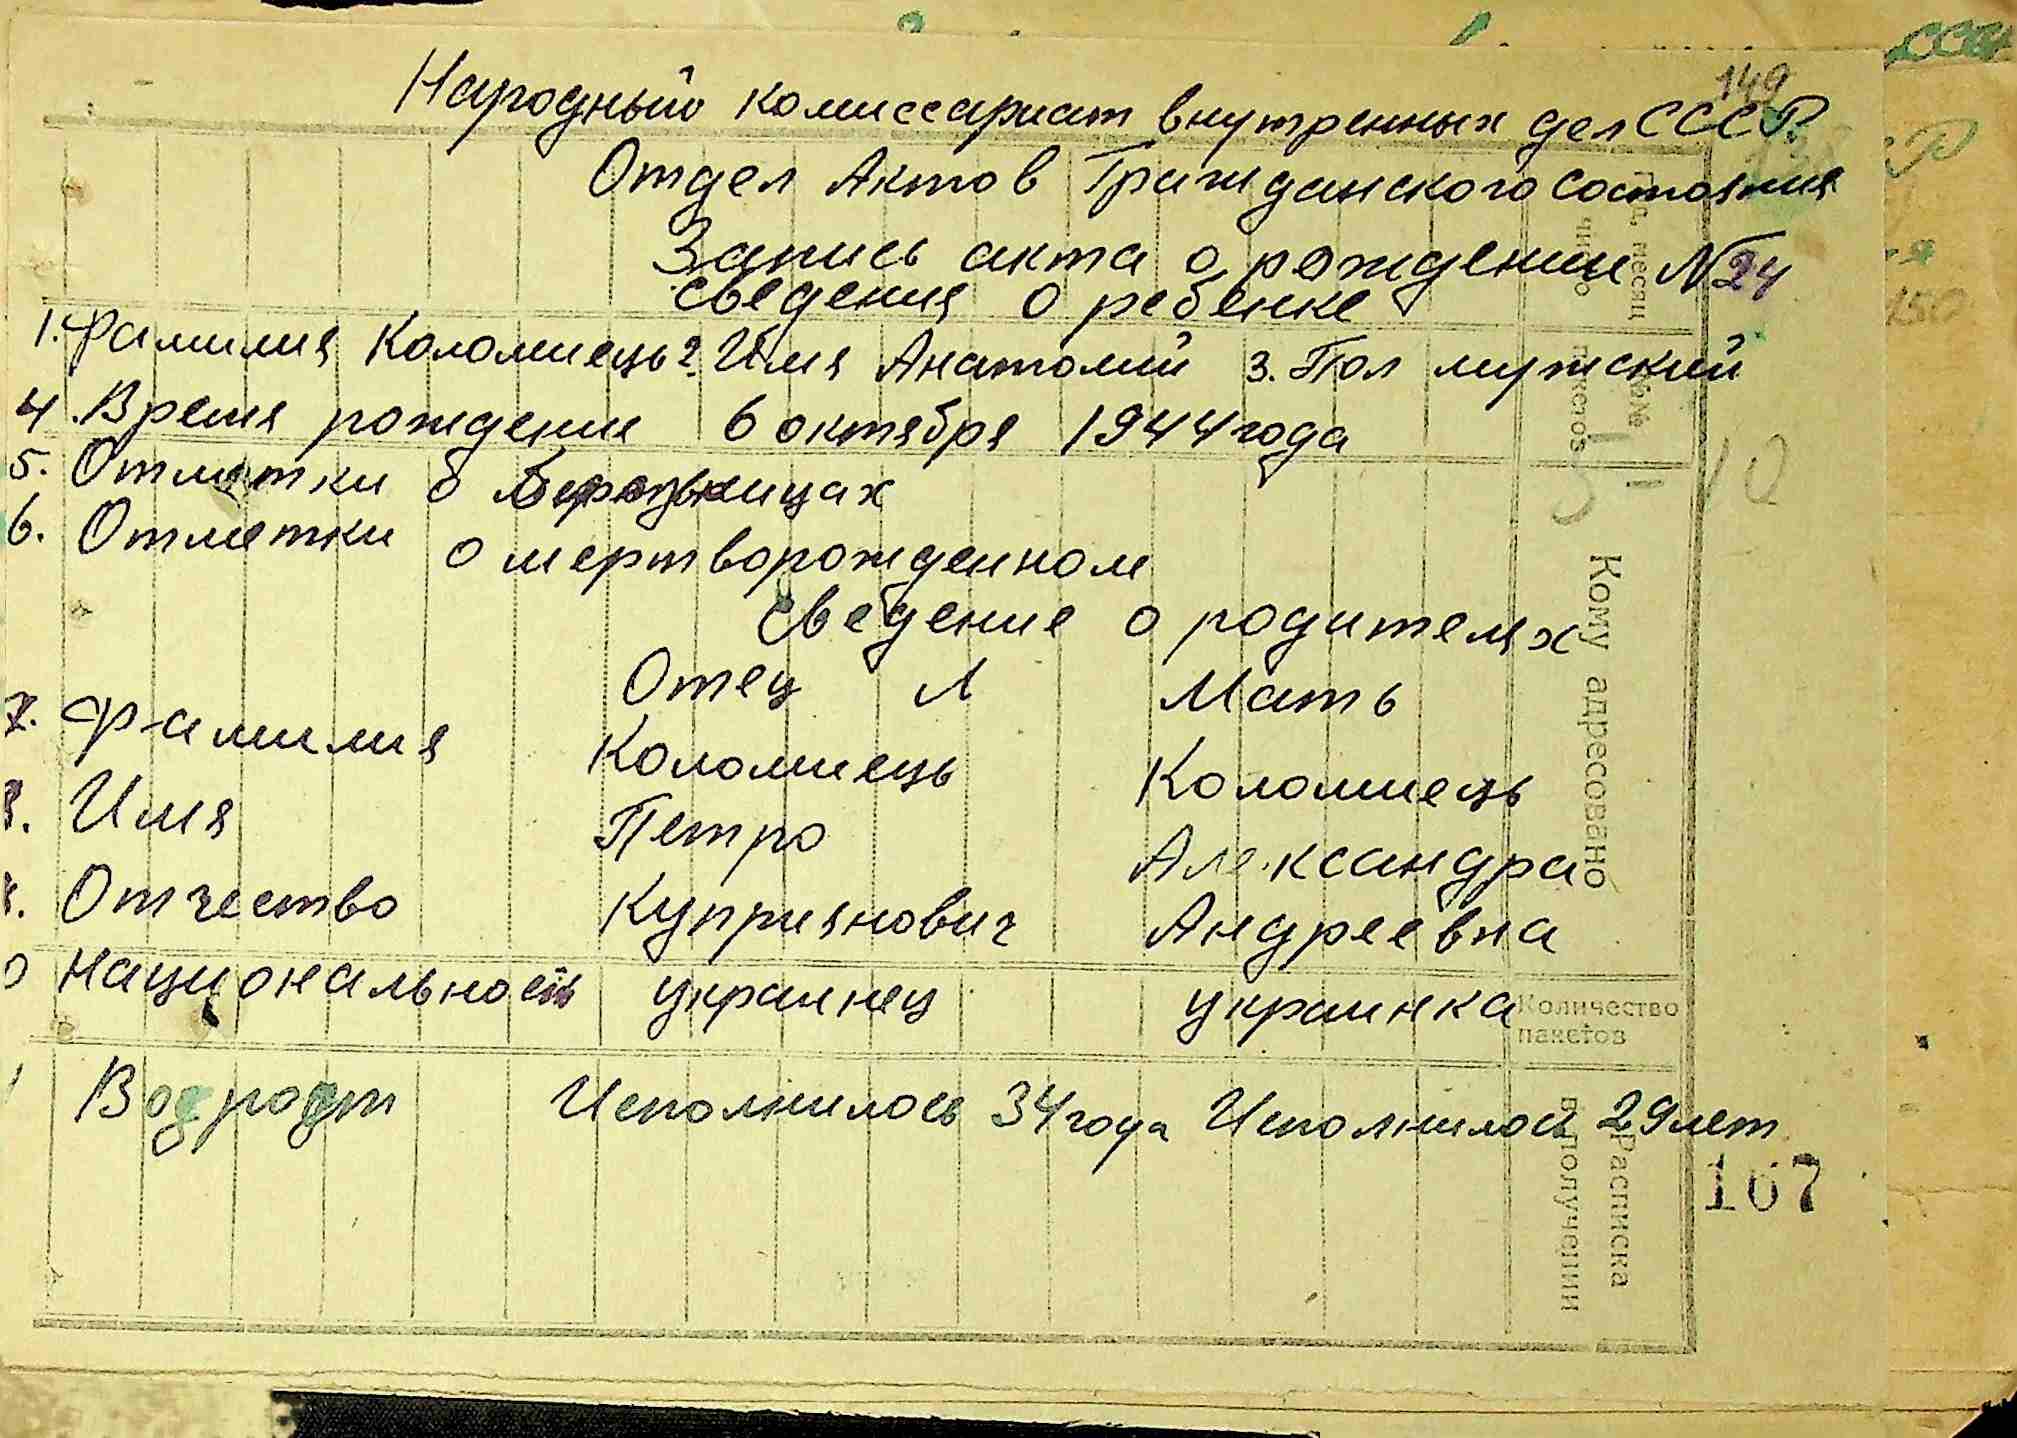 149
Народный комиссариат внутренных дел СССР
Отдел Актов Гражданского состояния
Запись акта о рождении N 24
сведения о ребенке
1. Фамилия Коломиець 2. Имя Анатолий 3. Пол мужский
4. Время рождение 6 октября 1944 года
5. Отметки о
6. Отметки о мертворожденном
Сведение о родителях
Отец Мать
7. Фамилия Коломиець Коломиець
8. Имя Петро Александра
Отчество Куприянович Андреевна
Национальность украинец украинка
Возраст Исполнилось 34 года Исполнилось 29 лет
167
10
Год, месяц
число
№№
пакетов
Кому адресовано
Количество
пакетов
Расписка
в получении
СР
150